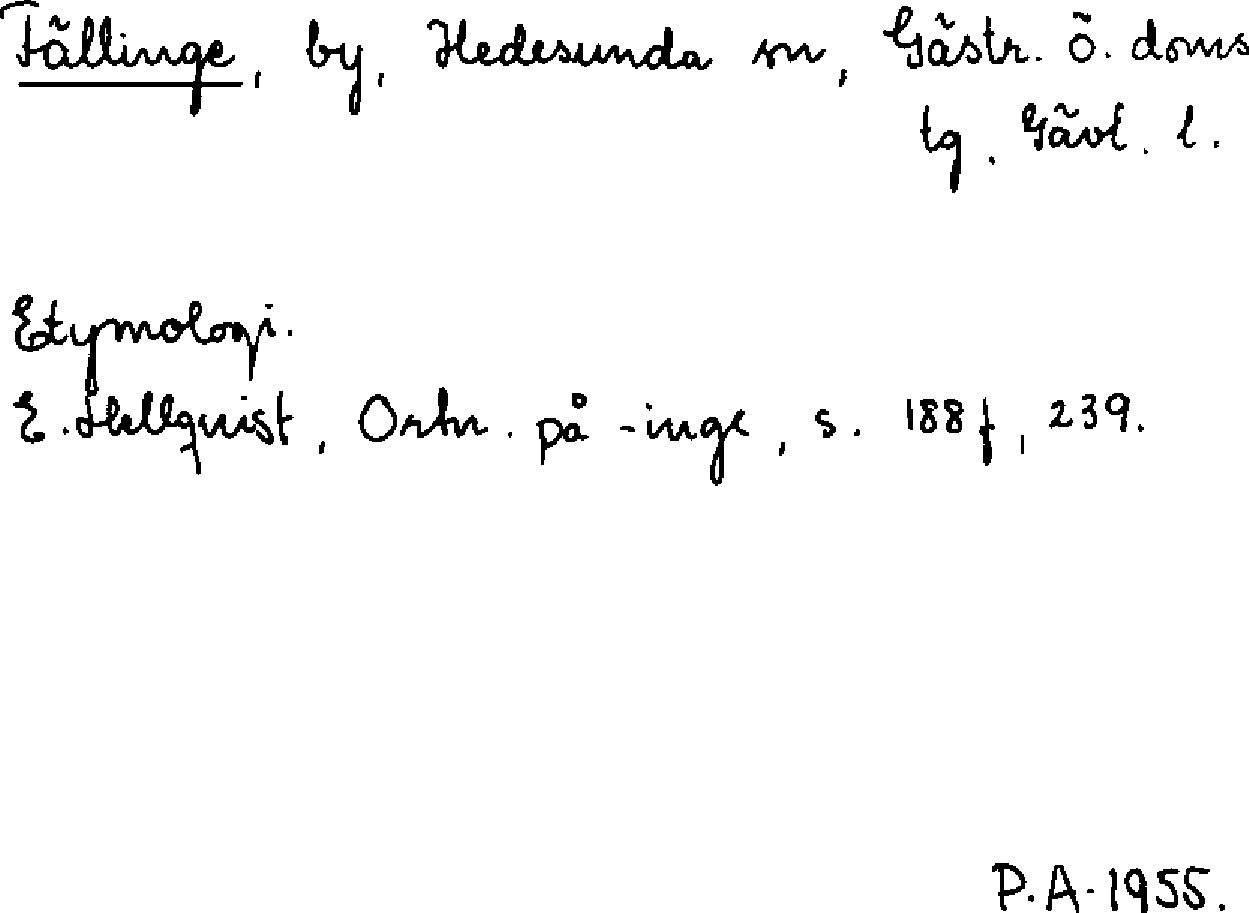 Fällinge, by, Hedesunda sn, Gästr. ö. doms
tg. Gävl. l.
Etymologi.
E. Hellquist, Ortn. på -inge, s. 188f, 239.
P.A. 1955.